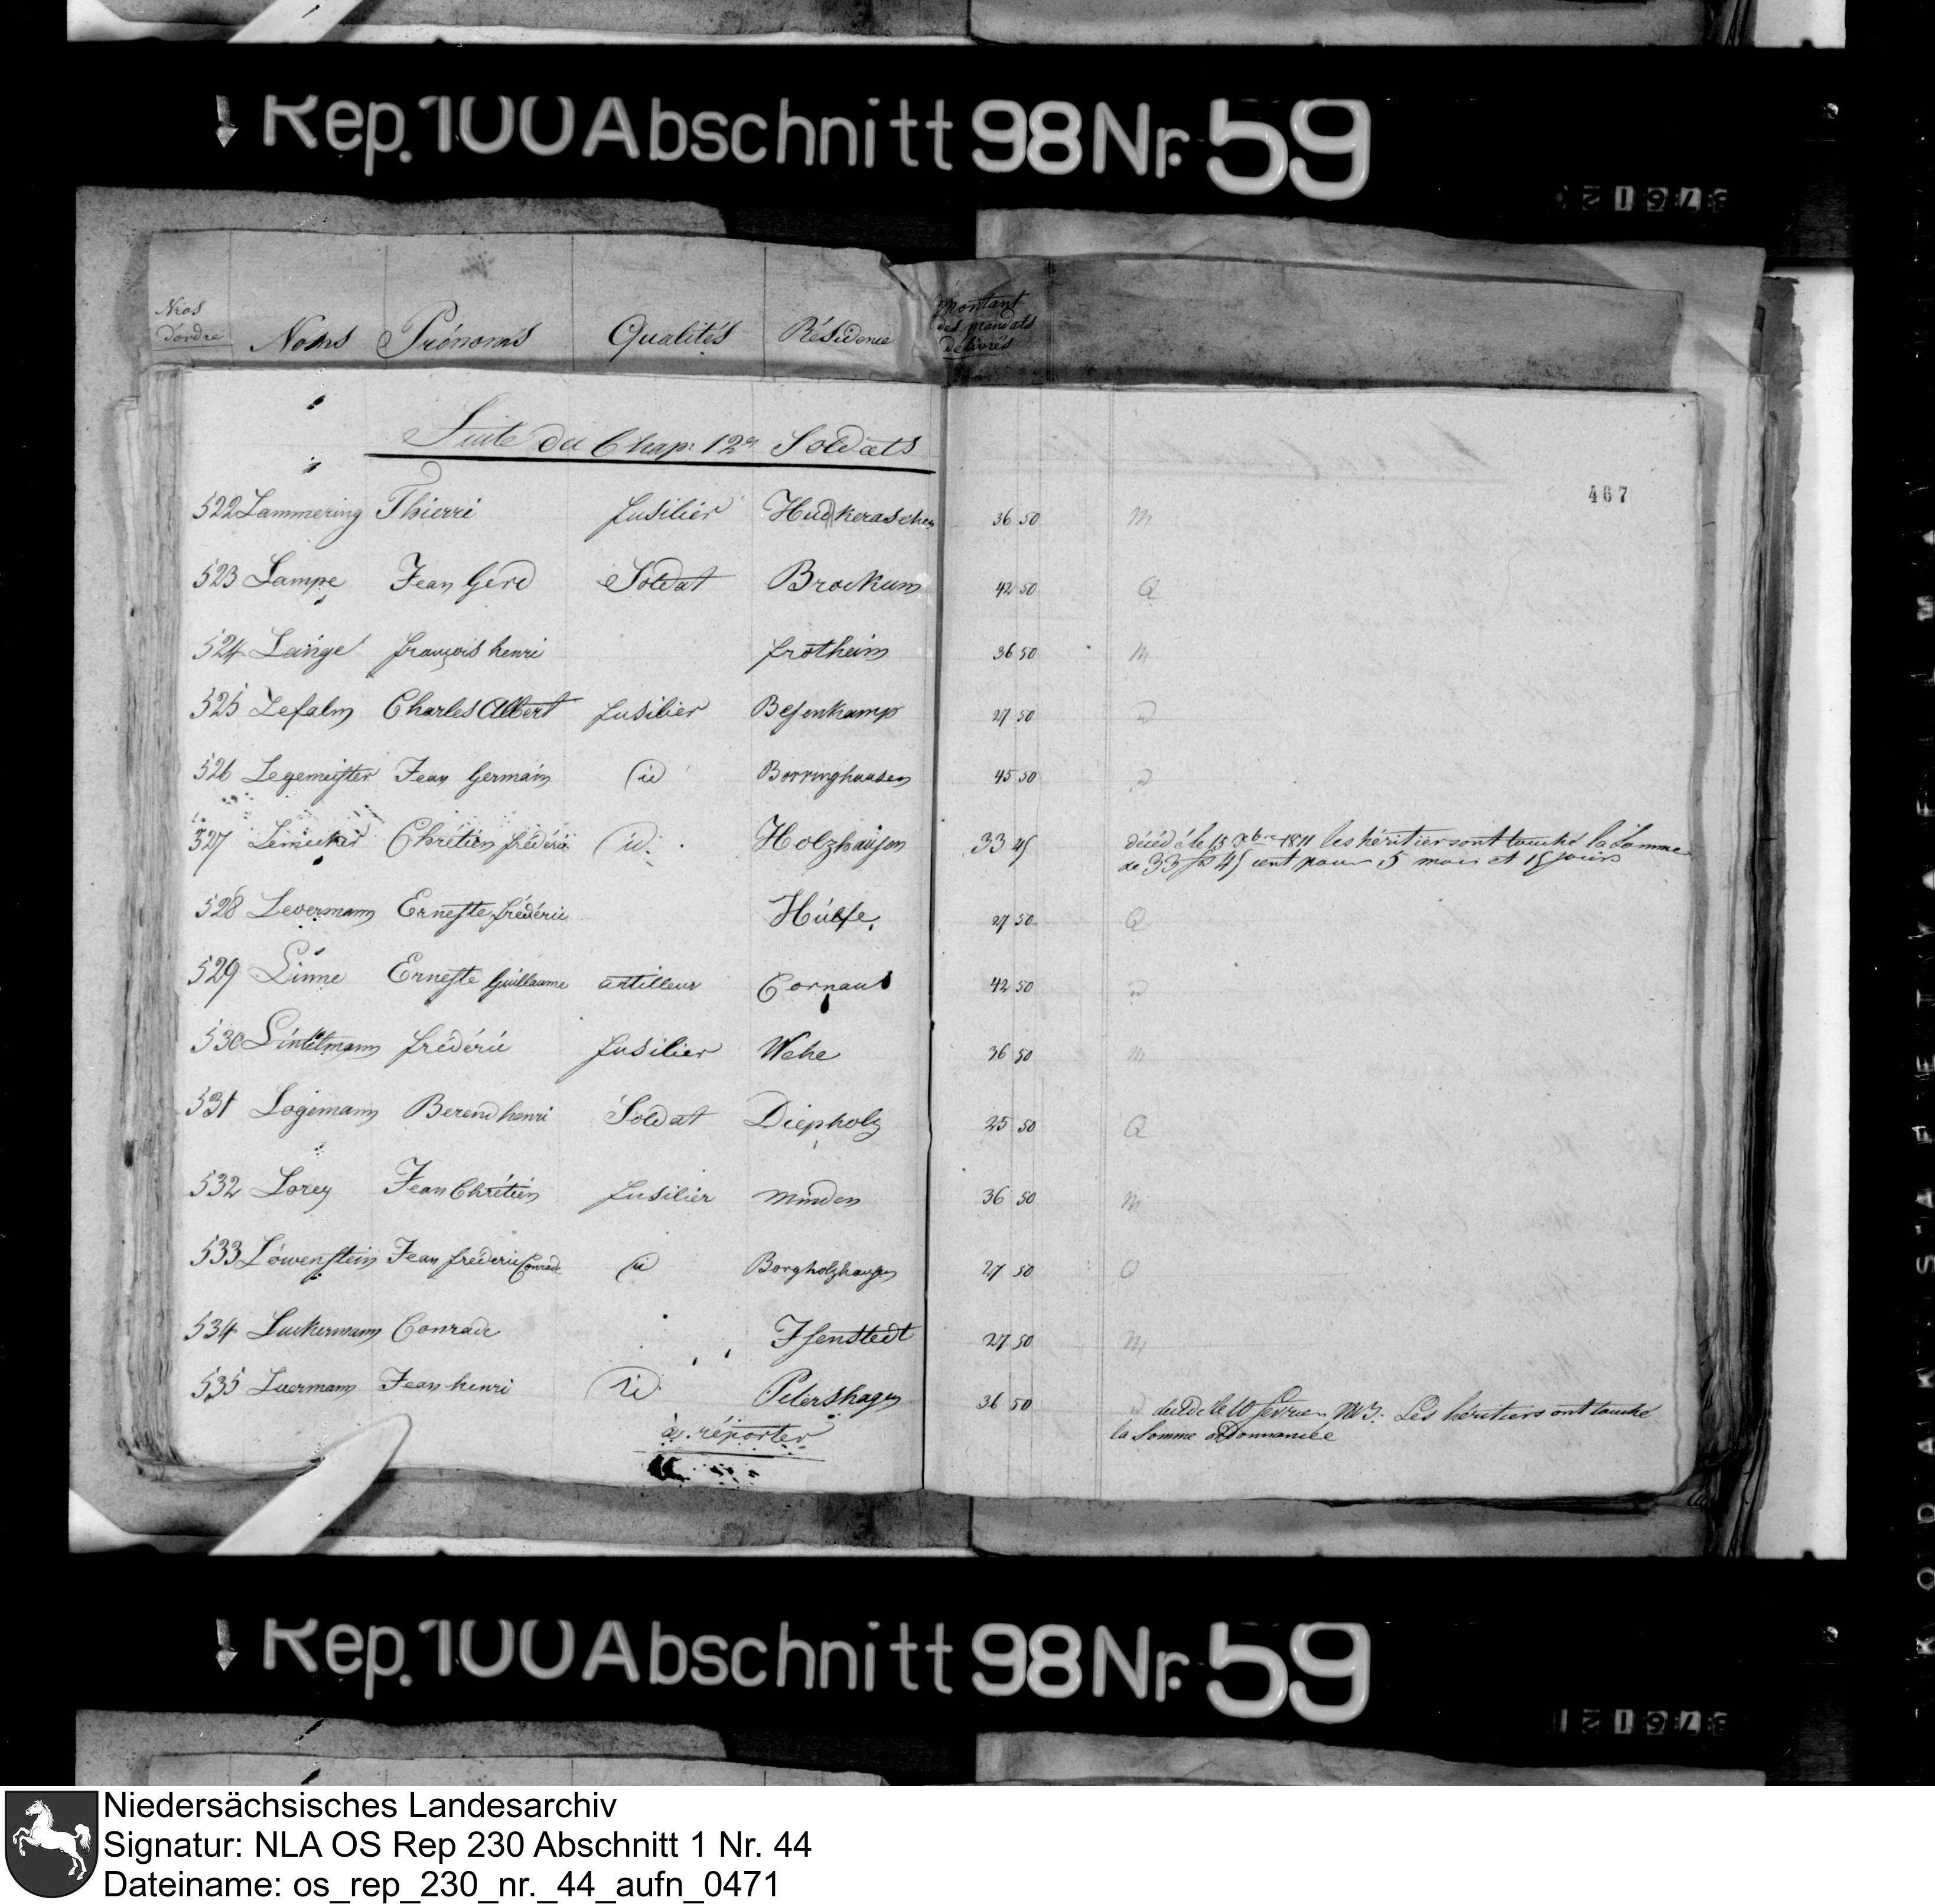 Rep. 100 Abschnitt 98 Nr. 59
Nros d'ordre Noms Prénoms Qualités Résidence Montant des mandats délivrés
Suite du Chap: 12. Soldats
467
522 Lammering Thierri fusilier 36 50 m
523 Lampe Jean Gerd Soldat Brockum 42 50 Q
524 Lange françois henri frotheim 36 50 m
525 Lefalm Charles Albert fusilier Besenkamp 27 50
526 Legemeister Jean Germain id Borringhausen 45 50
527 Chrétien fréderic id. Holzhausen 33 45 décédé le 15 Xbre 1811 les héritiers ont touché la Somme
de 33 fs 45 cent pour 5 mois et 15 jours
528 Levermann Erneste fréderic Hülfe 27 50 Q
529 Linne Erneste Guillaume artilleur Cornau 42 50
530 Lintelmann fréderic fusilier Wehe 36 50 m
531 Logemann Berend henri Soldat Diepholz 25 50 Q
532 Lorey Jean Chrétien fusilier Minden 36 50 m
533 Löwenstein Jean fréderic Conrade id Borgholzhausen 27 50 O
534 Luckermann Conrade Isenstedt 27 50 m
535 Luermann Jean henri id Petershagen 36 50 décédé le 10 fevrier Les héritiers ont touché
la Somme ordonnancée
à réporter
Rep. 100 Abschnitt 98 Nr. 59
Niedersächsisches Landesarchiv
Signatur: NLA OS Rep 230 Abschnitt 1 Nr. 44
Dateiname: os_rep_230_nr._44_aufn_0471